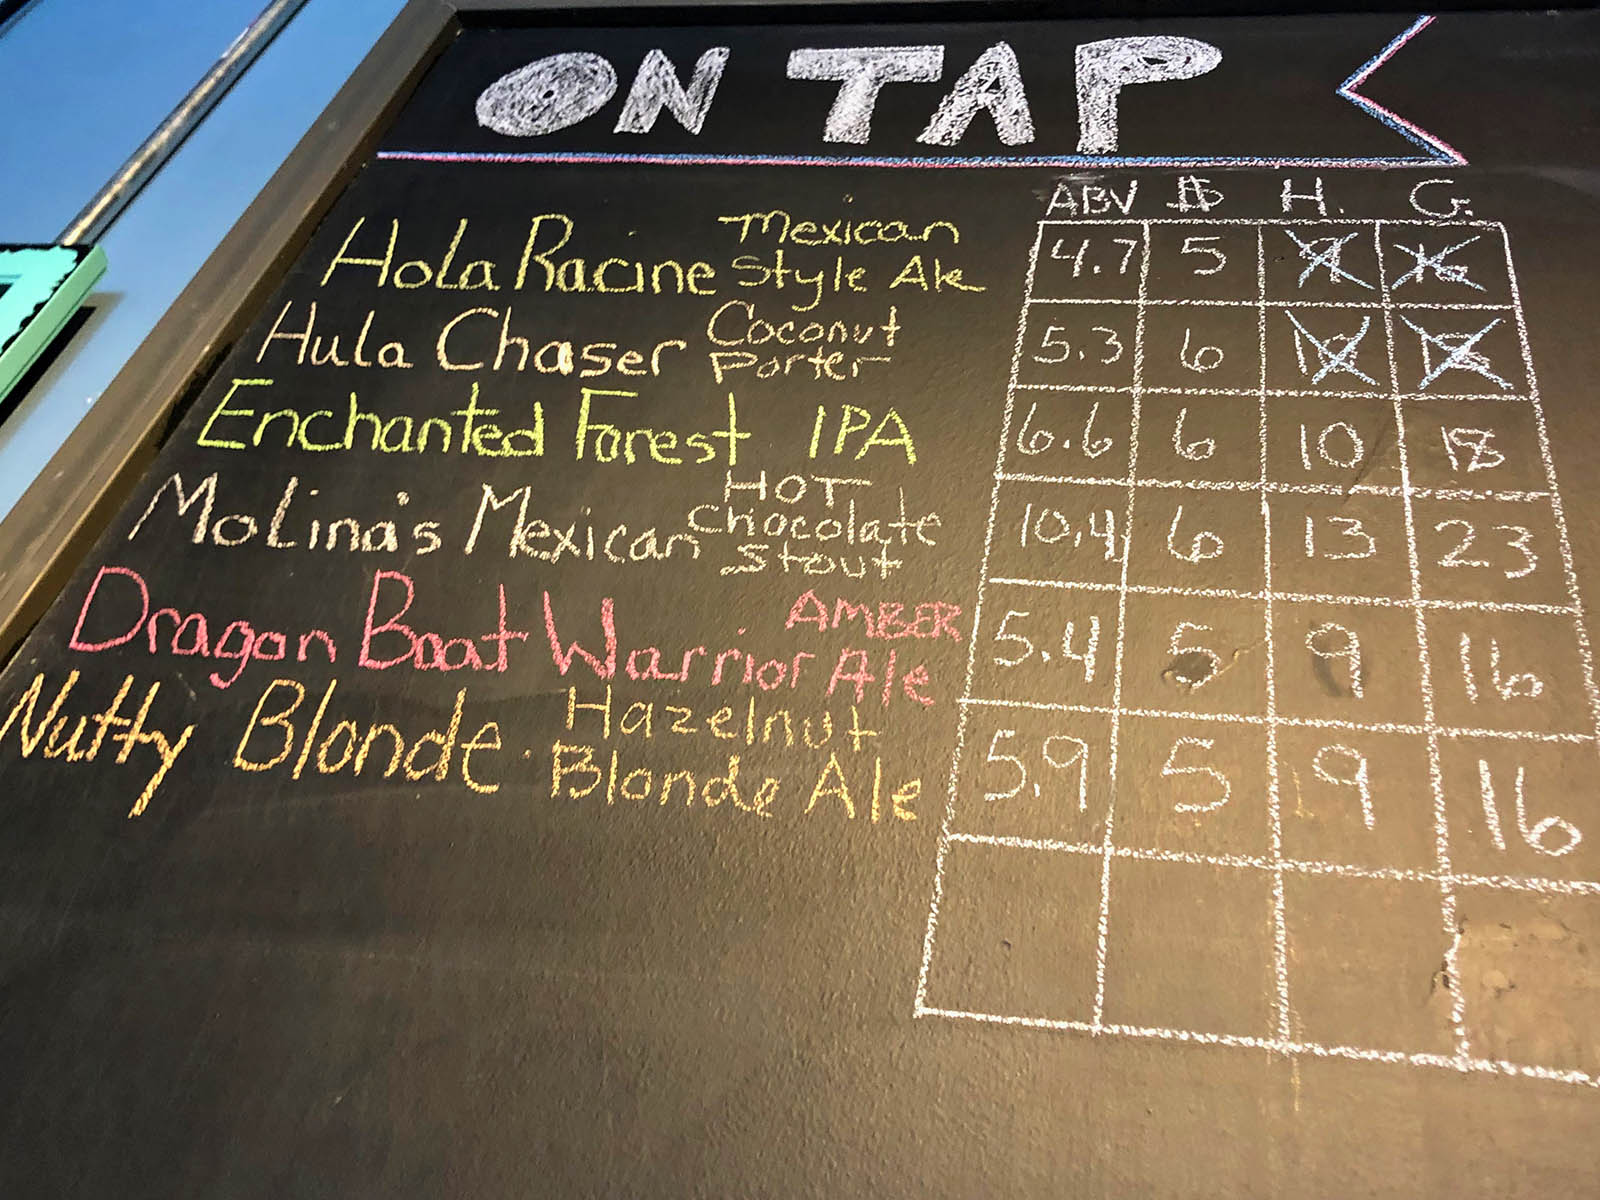 ON TAP
ABV $ H. G.
Hola Racine Mexican Style Ale 4.7 5
Hula Chaser Coconut Porter 5.3 6
Enchanted Forest IPA 6.6 6 10 18
Molina's Mexican HOT Chocolate Stout 10.4 6 13 23
Dragon Boat Warrior AMBER Ale 5.4 5 9 16
Nutty Blonde. Hazelnut Blonde Ale 5.9 5 9 16